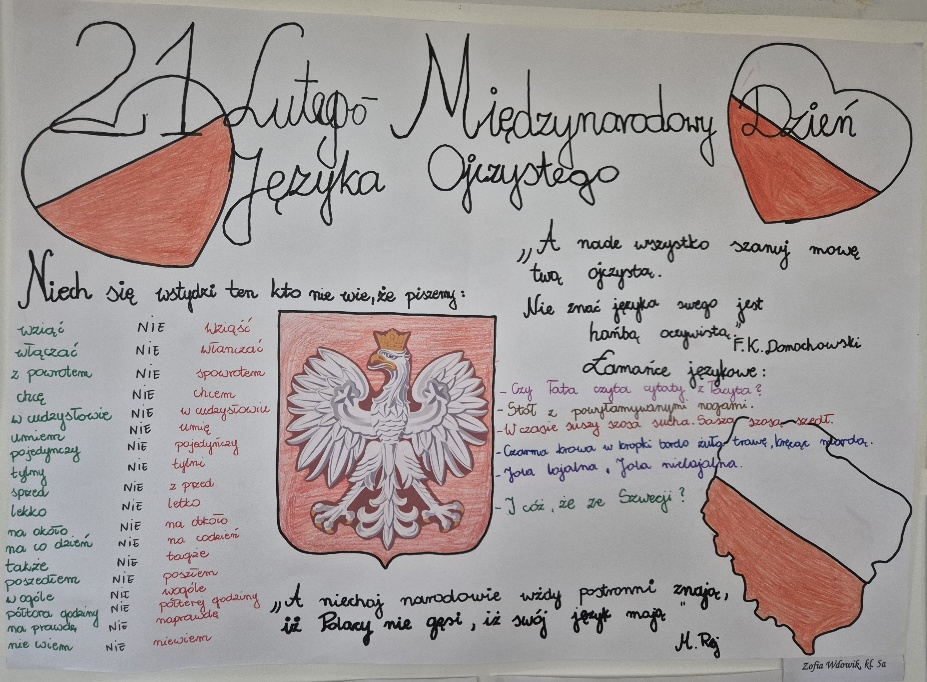 21 Lutego Międzynarodowy Dzień
Języka Ojczystego
Niech się wstydzi ten kto nie wie, że piszemy:
wziąć NIE wziąść
włączać NIE włanczać
z powrotem NIE spowrotem
chcę NIE chcem
w cudzysłowie NIE w cudzysłowiu
umiem NIE umię
pojedynczy NIE pojedyńczy
tylny NIE tylni
sprzed NIE z przed
lekko NIE letko
na około NIE na okóło
na co dzień NIE na codzień
także NIE tagże
poszedłem NIE poszłem
w ogóle NIE wogóle
półtora godziny NIE półtorej godziny
na prawdę NIE naprawdę
nie wiem NIE niewiem
„A nade wszystko szanuj mowę
twą ojczystą.
Nie znać języka swego jest
hańbą oczywistą"
F.K. Domochowski
Łamańce językowe:
- Czy Tata czyta cytaty z Tacyta?
- Stół z powyłamywanymi nogami.
- W czasie suszy szosa sucha. Sasza szosą szedł.
- Czarna krowa w kropki bordo żuła trawę, kręcąc mordą.
- Jola lojalna, Jola nielojalna.
- I cóż, że ze Szwecji?
„A niechaj narodowie wżdy postronni znają,
iż Polacy nie gęsi, iż swój język mają"
M. Rej
Zofia Wdowik, kl. 5a